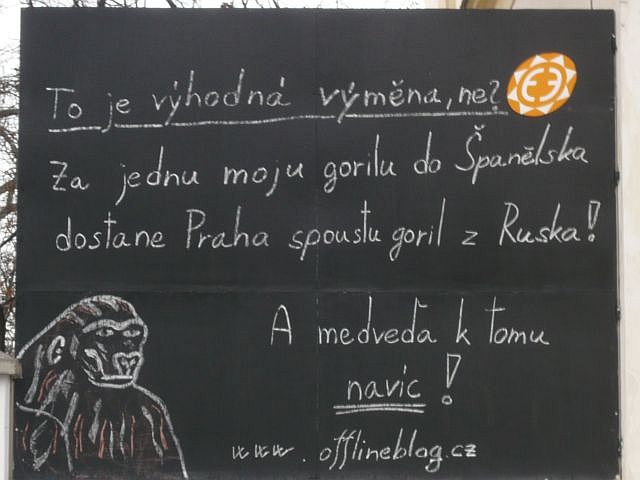 To je výhodná výměna, ne?
Za jednu moju gorilu do Španělska
dostane Praha spoustu goril z Ruska!
A medveďa k tomu
navíc!
www.offlineblog.cz